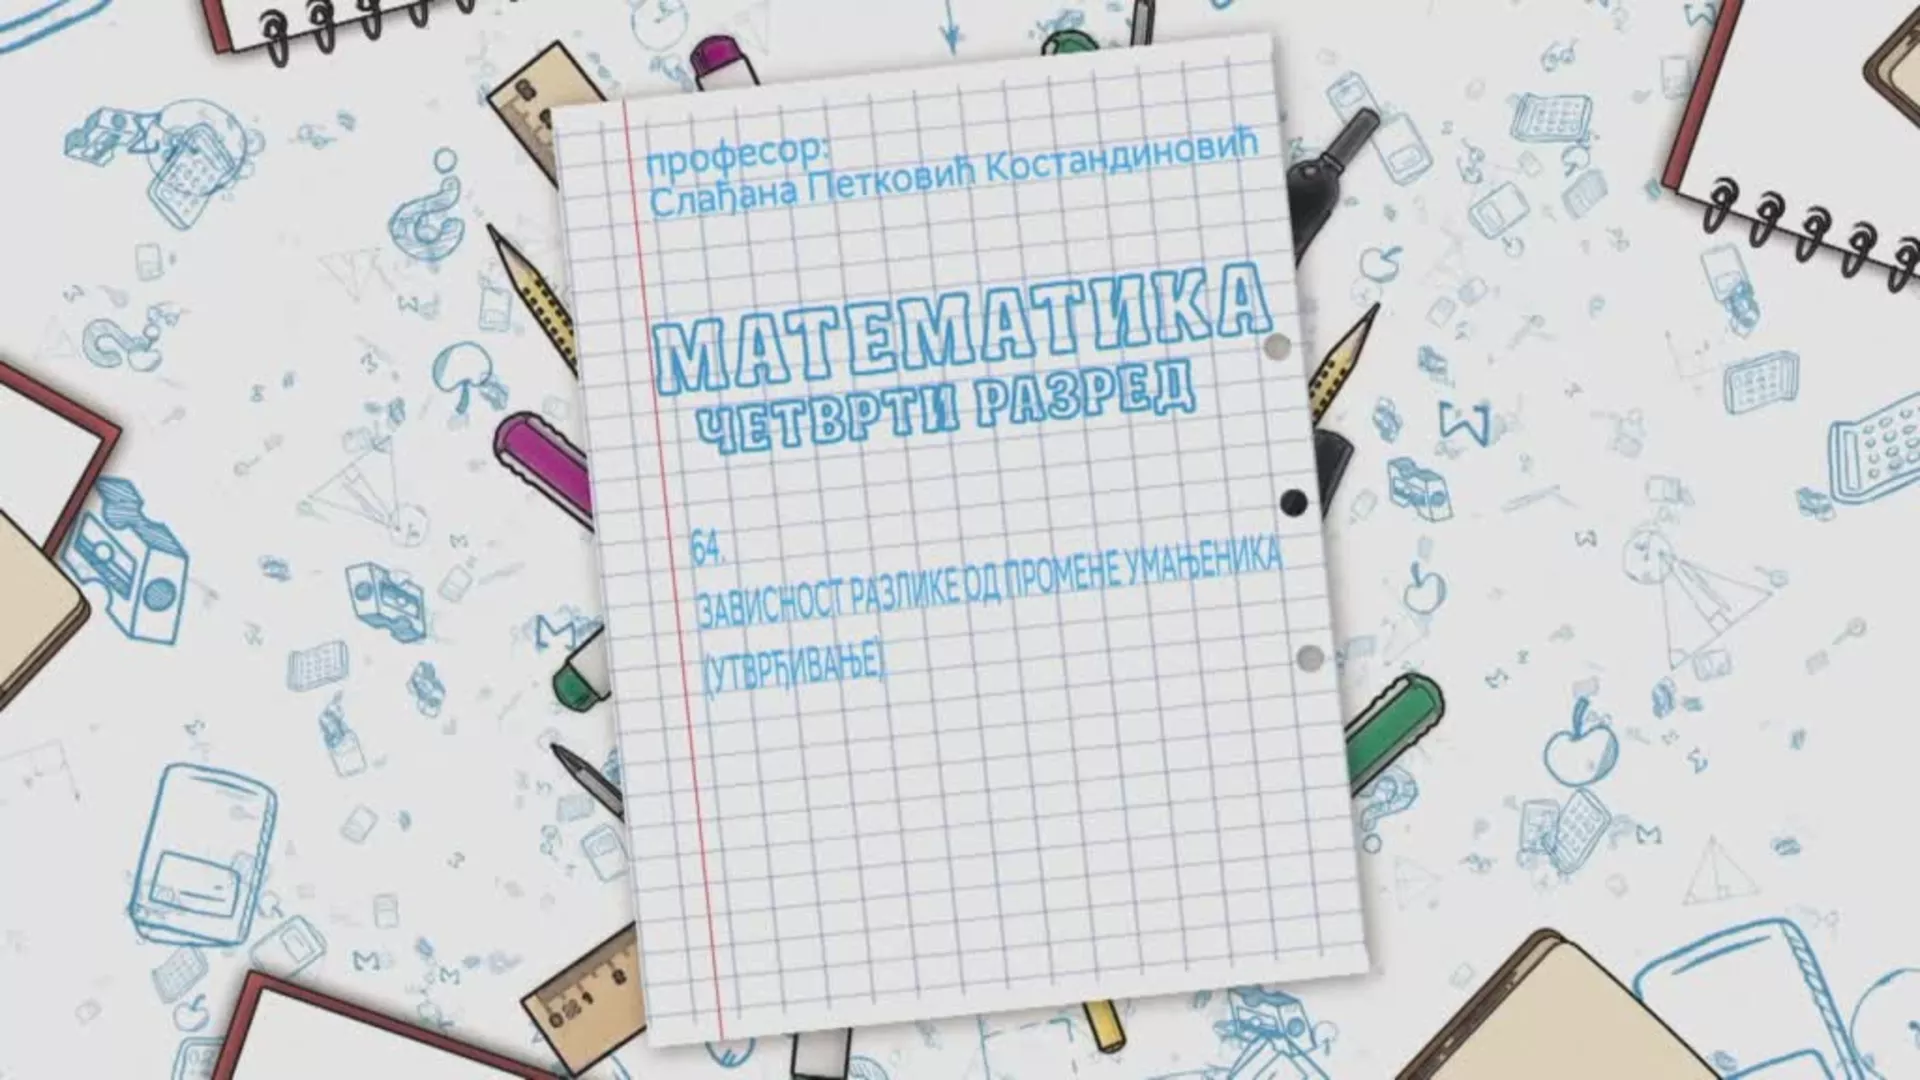 професор:
Слађана Петковић Костандиновић
МАТЕМАТИКА
ЧЕТВРТИ РАЗРЕД
64.
ЗАВИСНОСТ РАЗЛИКЕ ОД ПРОМЕНЕ УМАЊЕНИКА
(УТВРЂИВАЊЕ)